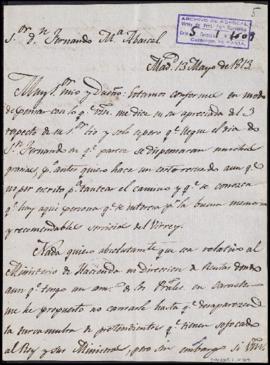 5
ARCHIVO DE ABASCAL
S.or d.n Fernando M.a Abascal
Mad.d 13 Mayo de 1813
Muy S.or mio y Dueño: Estamos conformes en modo
de pensar con lo q.e Vm. me dice en su apreciada del 3
respecto de su Tio y solo espero q.e llegue el dia de
S.n Fernando en q.e parece se dispensaran muchas
gracias, p.a antes quiero hacer un corto recuerdo aunq.e
no por escrito p.a tantear el camino y q.e se conozca
q.e hay aqui persona q.e se interesa p.r la buena memoria
y recomendables servicios del Virrey.
Nada quiero absolutamente que sea relativo al
Ministerio de Hacienda ni direccion de Rentas donde
aunq.e tengo un am.o de los
me he propuesto no cansarle hasta q.e desaparezca
la turbamulta de pretendientes q.e tienen sofocado
al Rey y sus Ministros, pero sin embargo si Vm.